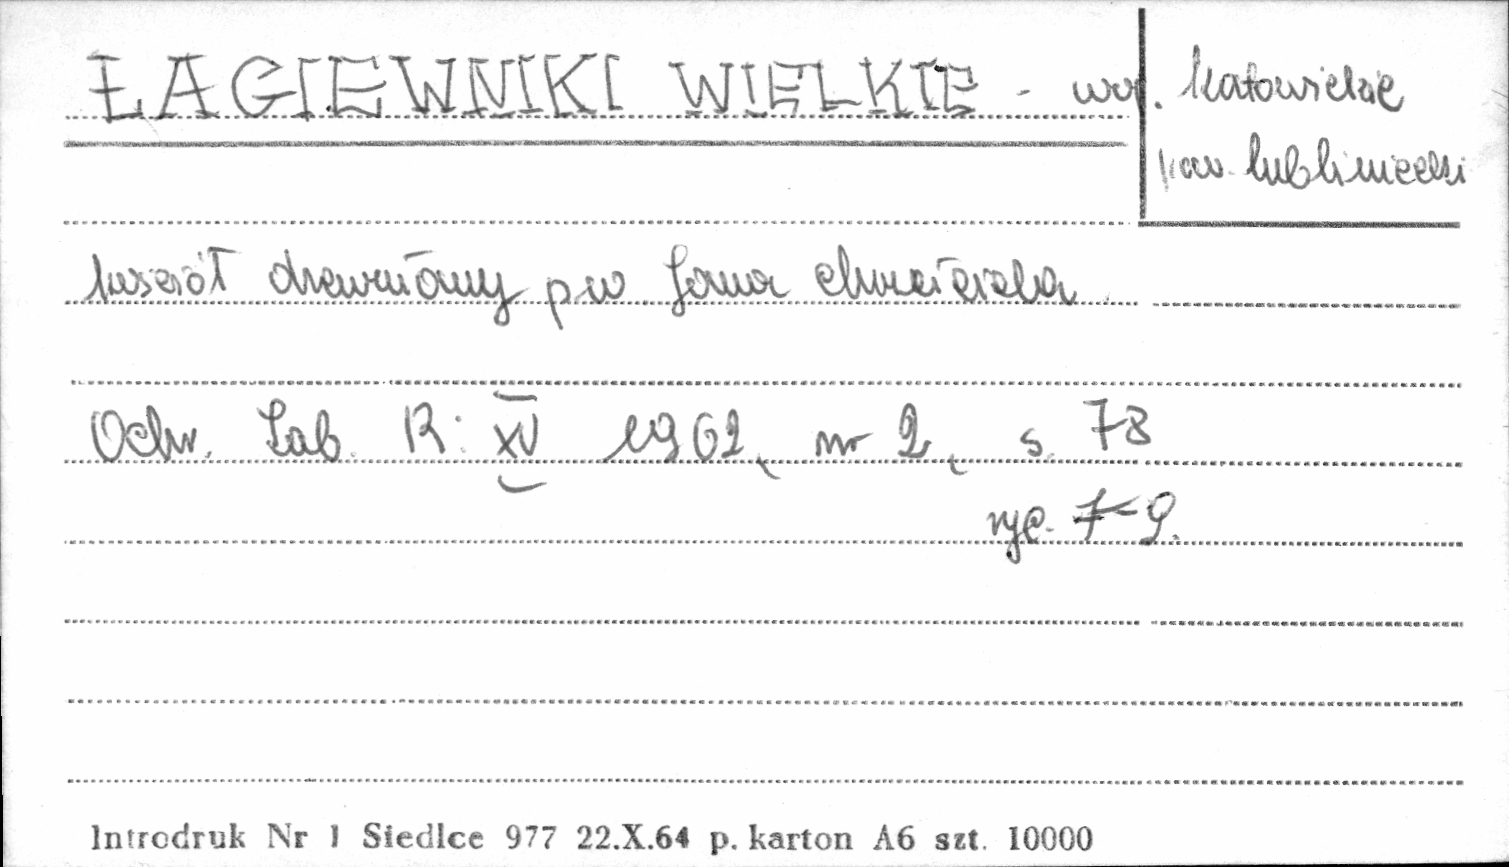 ŁAGIEWNIKI WIELKIE - woj. katowickie
pow. lubliniecki
kościół drewniany pw Jana Chrzciciela
Ochr. Zab. R: XV 1962, nr 2, s. 78
ryc. 7-9.
Introdruk Nr 1 Siedlce 977 22.X.64 p. karton A6 szt. 10000